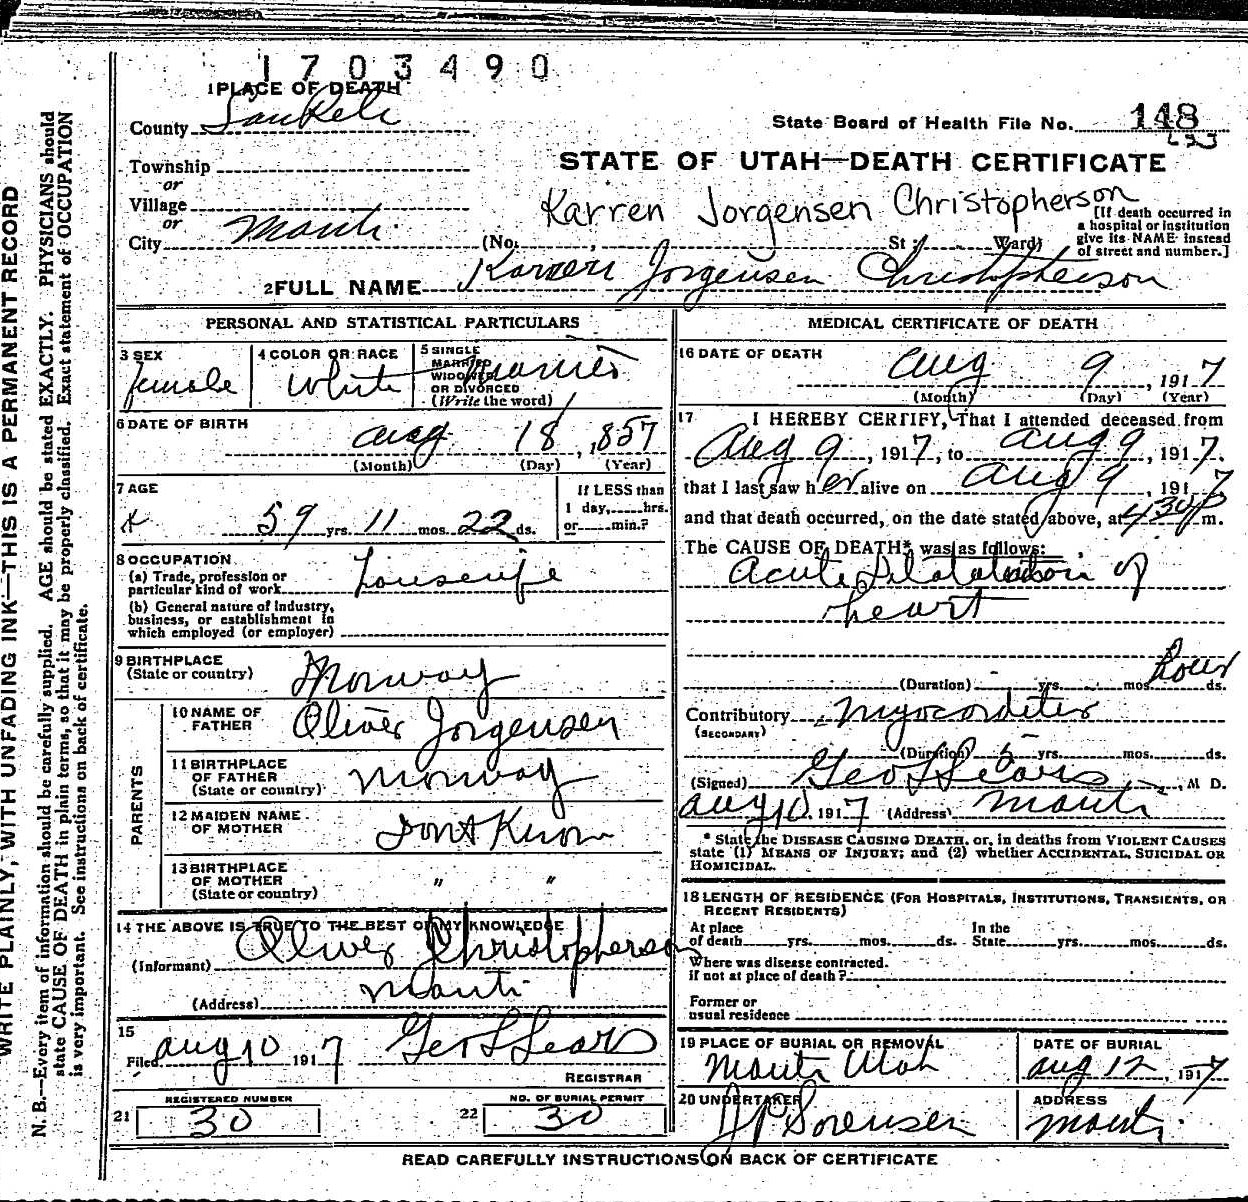 1703490
1 PLACE OF DEATH
County Sanpete
State Board of Health File No. 148
Township
or
STATE OF UTAH—DEATH CERTIFICATE
Village
or
Karren Jorgensen Christopherson
City Manti
(No. St ; Ward)
[If death occurred in a hospital or institution give its NAME instead of street and number.]
2 FULL NAME Karren Jorgensen Christopherson
PERSONAL AND STATISTICAL PARTICULARS
3 SEX female
4 COLOR OR RACE White
5 SINGLE MARRIED WIDOWED OR DIVORCED (Write the word) Married
6 DATE OF BIRTH
Aug 18, 1857
(Month) (Day) (Year)
7 AGE
59 yrs. 11 mos. 22 ds.
If LESS than
1 day, hrs.
or min.?
8 OCCUPATION
(a) Trade, profession or
particular kind of work Housewife
(b) General nature of Industry,
business, or establishment in
which employed (or employer)
9 BIRTHPLACE
(State or country) Norway
PARENTS
10 NAME OF
FATHER Oliver Jorgensen
11 BIRTHPLACE
OF FATHER
(State or country) Norway
12 MAIDEN NAME
OF MOTHER Dont Know
13 BIRTHPLACE
OF MOTHER
(State or country) " "
14 THE ABOVE IS TRUE TO THE BEST OF MY KNOWLEDGE
(Informant) Oliver Christopherson
(Address) Manti
15
Filed Aug 10 1917 Geo L Sears
REGISTRAR
REGISTERED NUMBER
21 30
NO. OF BURIAL PERMIT
22 30
MEDICAL CERTIFICATE OF DEATH
16 DATE OF DEATH
Aug 9, 1917
(Month) (Day) (Year)
17 I HEREBY CERTIFY, That I attended deceased from
Aug 9, 1917, to Aug 9, 1917.
that I last saw her alive on Aug 9, 1917
and that death occurred, on the date stated above, at 430 p m.
The CAUSE OF DEATH* was as follows:
Acute Dilatation of
heart
(Duration) yrs. mos. ds. hour
Contributory Myocarditis
(SECONDARY)
(Duration) 5 yrs. mos. ds.
(Signed) Geo L Sears, M D.
Aug 10, 1917 (Address) Manti
* State the DISEASE CAUSING DEATH, or, in deaths from VIOLENT CAUSES
state (1) MEANS OF INJURY; and (2) whether ACCIDENTAL, SUICIDAL OR
HOMICIDAL.
18 LENGTH OF RESIDENCE (FOR HOSPITALS, INSTITUTIONS, TRANSIENTS, OR
RECENT RESIDENTS)
At place
of death yrs. mos. ds.
In the
State yrs. mos. ds.
Where was disease contracted.
if not at place of death?
Former or
usual residence
19 PLACE OF BURIAL OR REMOVAL
Manti Utah
DATE OF BURIAL
Aug 12, 1917
20 UNDERTAKER
J P Sorensen
ADDRESS
Manti
READ CAREFULLY INSTRUCTIONS ON BACK OF CERTIFICATE
WRITE PLAINLY, WITH UNFADING INK—THIS IS A PERMANENT RECORD
N. B.—Every item of information should be carefully supplied. AGE should be stated EXACTLY. PHYSICIANS should
state CAUSE OF DEATH in plain terms, so that it may be properly classified. Exact statement of OCCUPATION
is very important. See instructions on back of certificate.